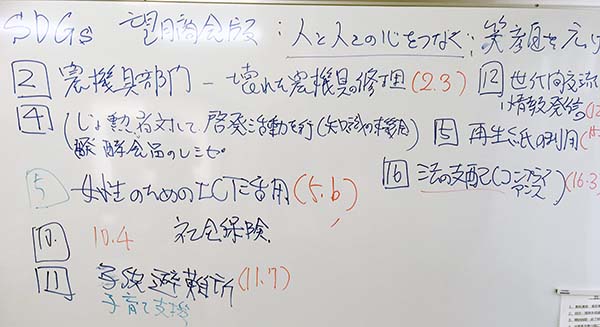 SDGs 望月商会版：人と人との心をつなぐ：笑顔を広げ
2 農機具部門 － 壊れた農機具の修理(2.3)
12 世代間交流
情報発信(12
4 (じょ勲者対して、啓発活動を行(知識や技術)
醗酵食品のレシピ
15 再生紙の利用(15.
5 女性のためのICT活用(5.b)
16 法の支配(コンプライアンス)(16.3)
10. 10.4 社会保険
11 子供避難所(11.7)
子育て支援